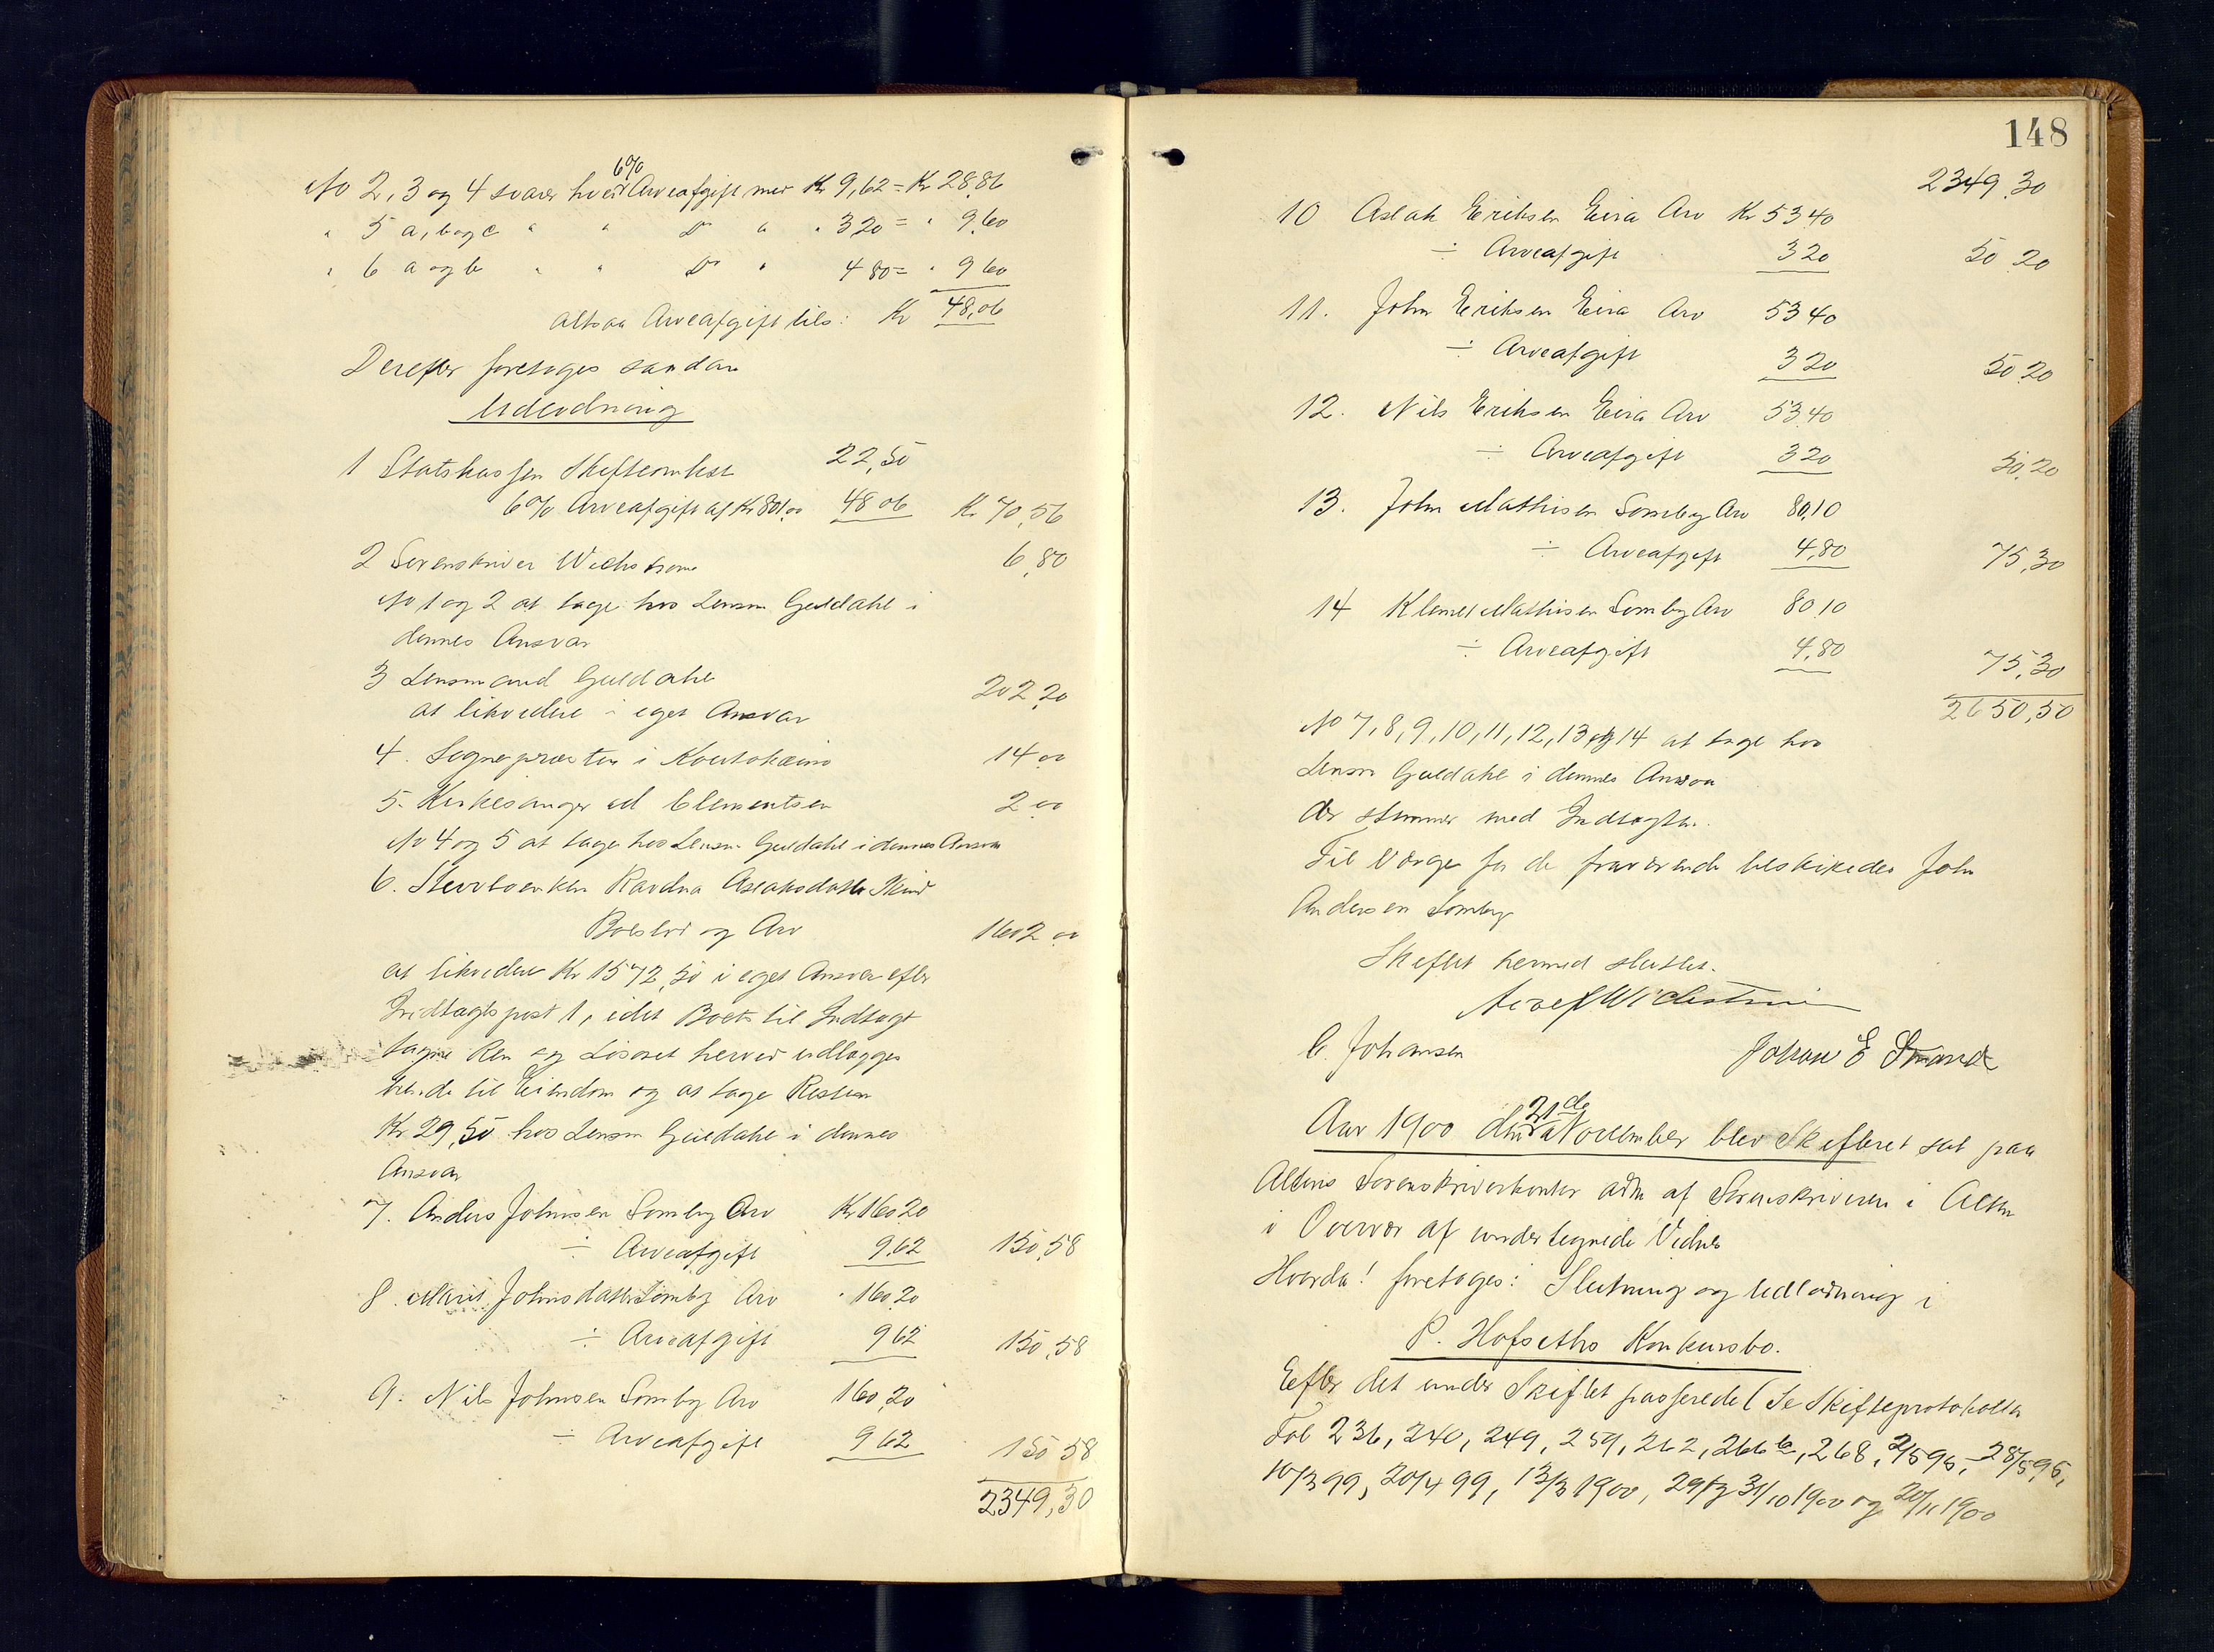 6%
No 2, 3 og 4 svarer hver Arveafgift med Kr 9,62 = Kr 28.86
" 5 a, b og c " " Do " " 3 20 = " 9.60
" 6 a og b " " Do " 4 80 = " 9 60
altsaa Arveafgift tils: Kr 48,06
Derefter foretoges saadan
Udlodning
1 Statskassen Skifteomkost 22,50
6% Arveafgift af Kr 801.00 48 06 Kr 70,56
2 Sorenskriver Wichstrøm 6,80
No 1 og 2 at tage hos Lensm Guldahl i
dennes Ansvar
3 Lensmand Guldahl 202.20
at likvidere i eget Ansvar
4. Sognepresten i Koutokæino 14 00
5. Kirkesanger Clementsen 2 00
No 4 og 5 at tage hos Lensm Guldahl i dennes Ansvar
6. Stervboenken Ravdna Aslaksdatter Skind
Boeslod og Arv 1602 00
at likvidere Kr 1572,50 i eget Ansvar efter
Indtægtspost 1, idet Boets til Indtægt
tagne Ren og Løsøret herved udlægges
hende til Eiendom og at tage Resten
Kr 29,50 hos Lensm Guldahl i dennes
Ansvar
7. Anders Johnsen Somby Arv Kr 160 20
÷ Arveafgift 9.62 150,58
8. Marit Johnsdatter Somby Arv " 160 20
÷ Arveafgift 9 62 150,58
9. Nils Johnsen Somby Arv 160,20
÷ Arveafgift 9 62 150 58
2349,30
148
2349.30
10 Aslak Eriksen Eira Arv Kr 53 40
÷ Arveafgift 3 20 50 20
11. John Eriksen Eira Arv 53 40
÷ Arveafgift 3 20 50.20
12. Nils Eriksen Eira Arv 53.40
÷ Arveafgift 3 20 50,20
13. John Mathisen Somby Arv 80,10
÷ Arveafgift 4,80 75,30
14 Klemet Mathisen Somby Arv 80 10
÷ Arveafgift 4,80 75,30
2650,50
No 7, 8, 9, 10, 11, 12, 13 og 14 at tage hos
Lensm Guldahl i dennes Ansvar
der stemmer med Indtægten.
Til Værge for de fraværende beskikedes John
Andersen Somby
Skiftet hermed sluttet.
Wichstrøm
C. Johansen Johan E
21de
Aar 1900 den November blev Skifteret sat paa
Altens Sorenskriverkontor adm af Sorenskriveren i Alten
i Overvær af undertegnede Vidner
Hvorda! foretoges: Slutning og Udlodning i
P. Hofseths Konkursbo.
Efter det under Skiftet passerede (Se Skifteprotokollen
Fol 236, 240, 249, 259, 262, 266 b, 268, 2/5 95, 28/5 95,
10/3 99, 20/4 99, 13/3 1900, 29/ 31/10 1900 og 20/11 1900